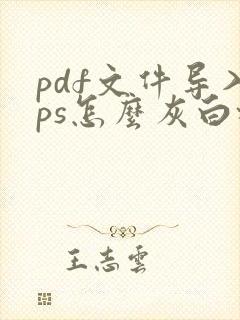 pdf文件导入
ps怎麼灰白
王志雲